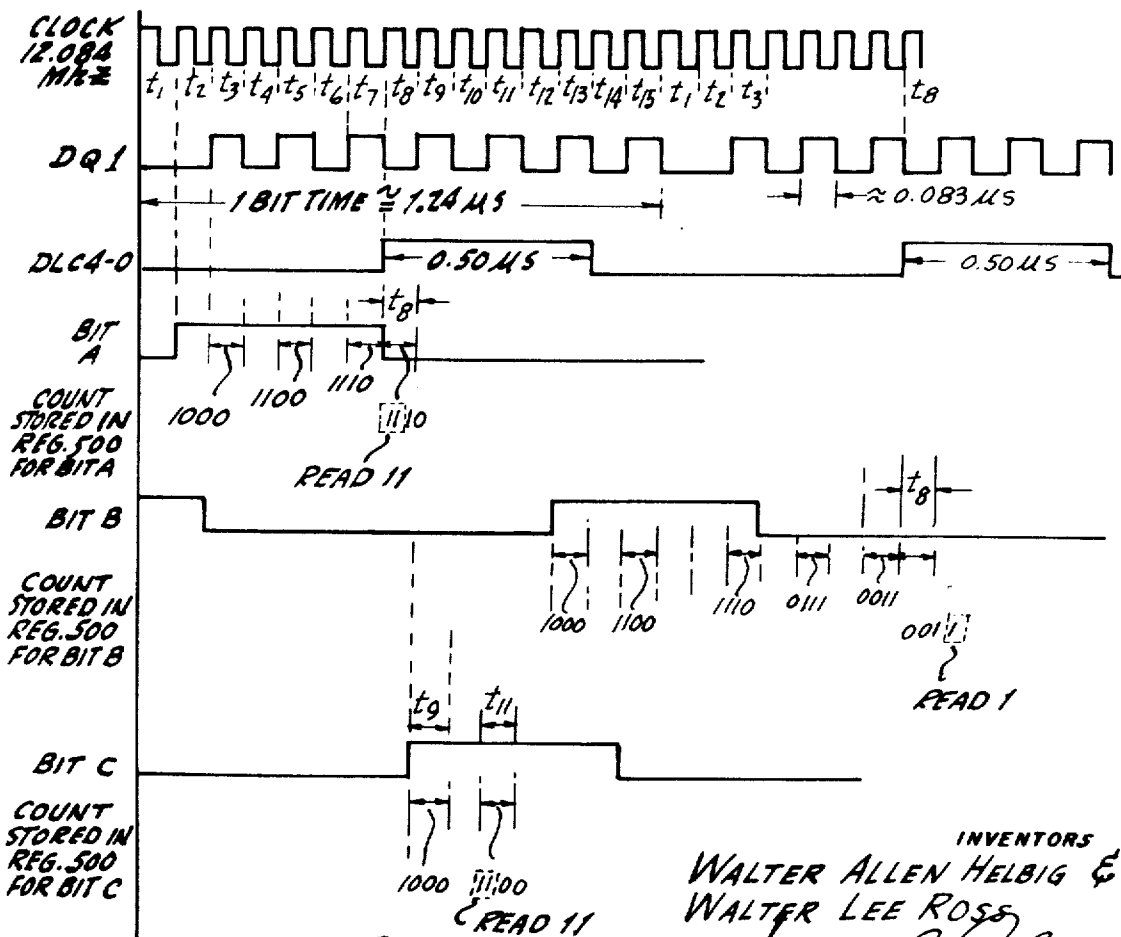 CLOCK
12.084
MHZ
t1 t2 t3 t4 t5 t6 t7 t8 t9 t10 t11 t12 t13 t14 t15 t1 t2 t3 t8
DQ1
1 BIT TIME ≅ 1.24 µS
≈ 0.083 µS
DLC4-0
0.50 µS
0.50 µS
t8
BIT
A
1000
1100
1110
1110
COUNT
STORED IN
REG. 500
FOR BIT A
READ 11
BIT B
t8
COUNT
STORED IN
REG. 500
FOR BIT B
1000
1100
1110
0111
0011
0011
READ 1
t9
t11
BIT C
COUNT
STORED IN
REG. 500
FOR BIT C
1000
1100
READ 11
INVENTORS
WALTER ALLEN HELBIG &
WALTER LEE ROSS